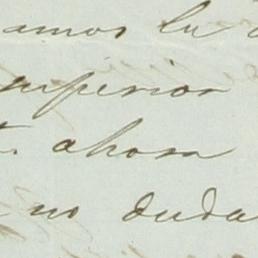 amos la
superior
ahora
no duda